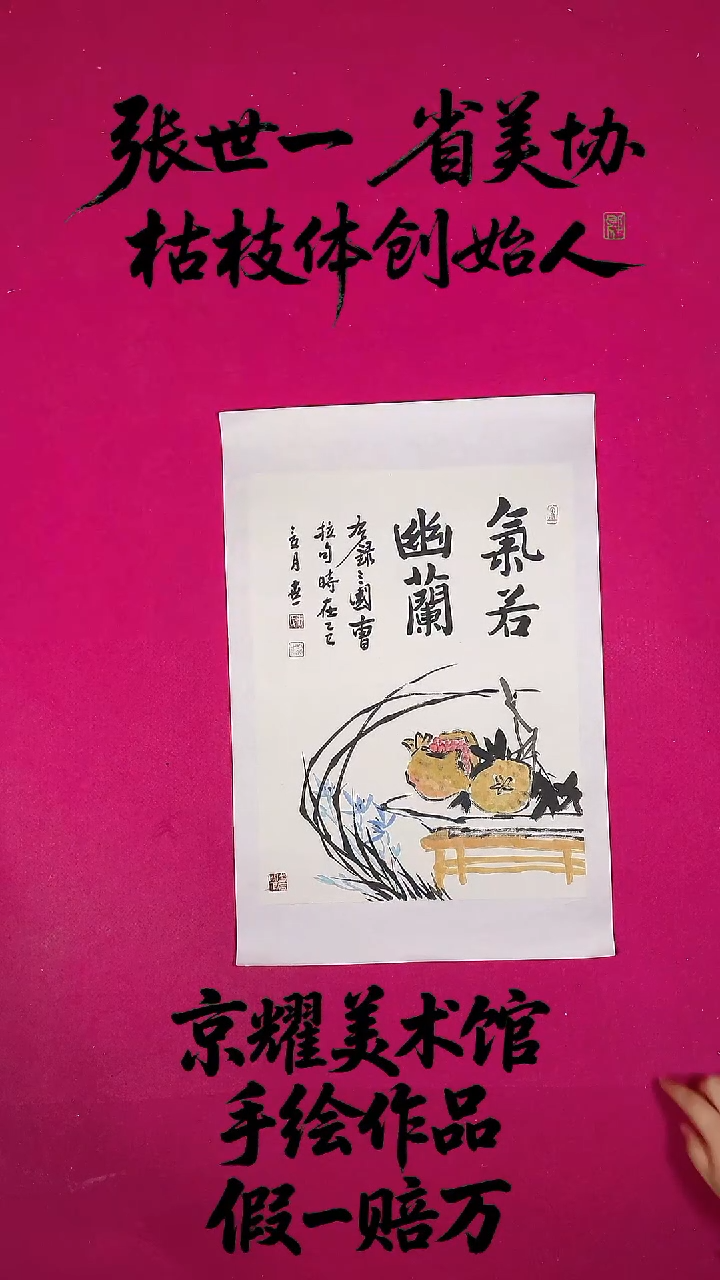 张世一 省美协
枯枝体创始人
氣若
幽蘭
右錄三國曹
植句時在乙巳
月
京耀美术馆
手绘作品
假一赔万